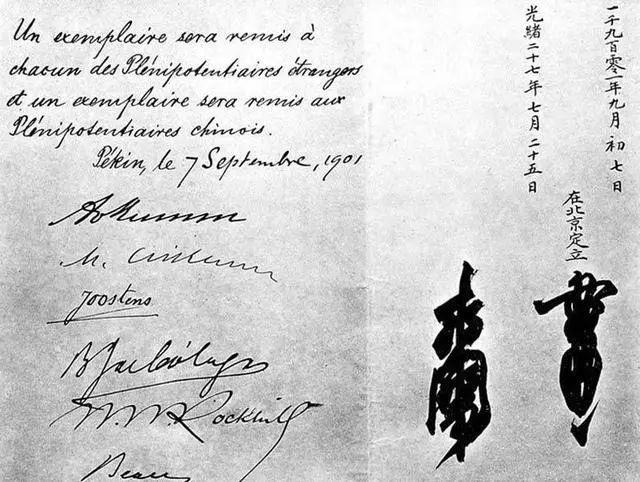 Un exemplaire sera remis à
chacun des Plénipotentiaires étrangers
et un exemplaire sera remis aux
Plénipotentiaires chinois.
Pékin, le 7 Septembre, 1901
Joostens
W. W. Rockhill
Beau
一千九百零一年九月初七日
光緒二十七年七月二十五日
在北京定立